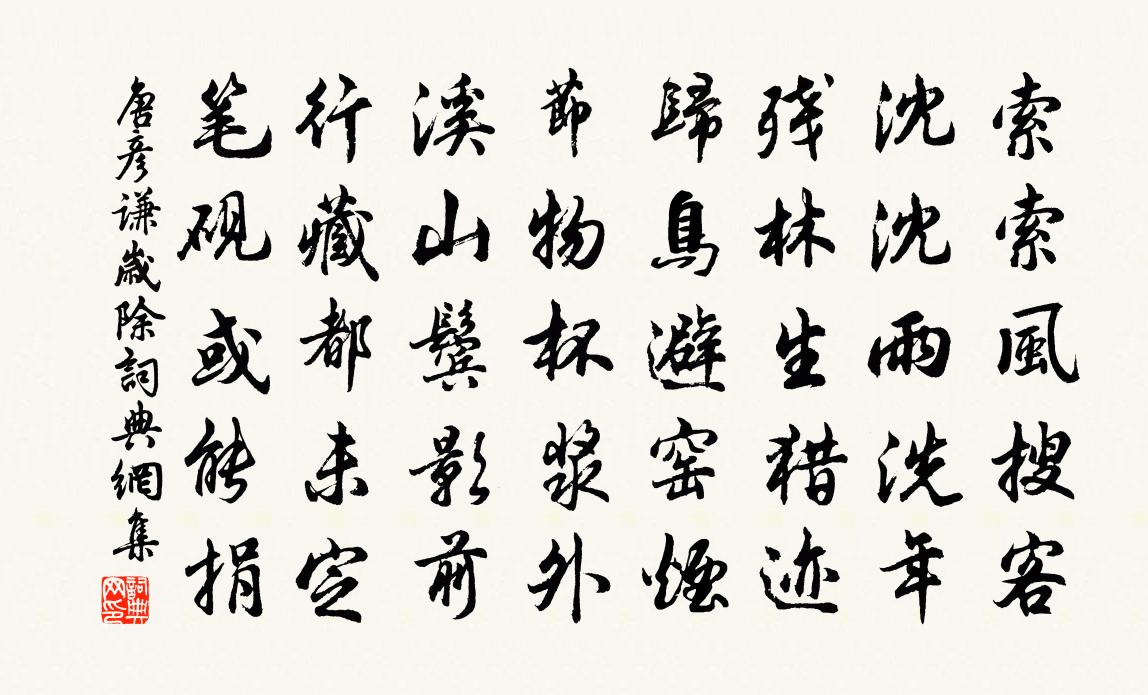 索索風搜客
沈沈雨洗年
残林生猎迹
歸鳥避窑煙
節物杯漿外
溪山鬓影前
行藏都未定
笔硯或能捐
唐彦謙歲除詞典網集
詞典网印